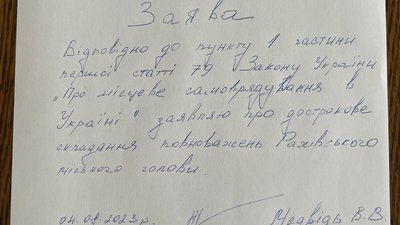 Заява
Відповідно до пункту 1 частини
першої статті 79 Закону України
„Про місцеве самоврядування в
Україні" заявляю про дострокове
складання повноважень Рахівського
міського голови.
04.08.2023р. Медвідь В.В.